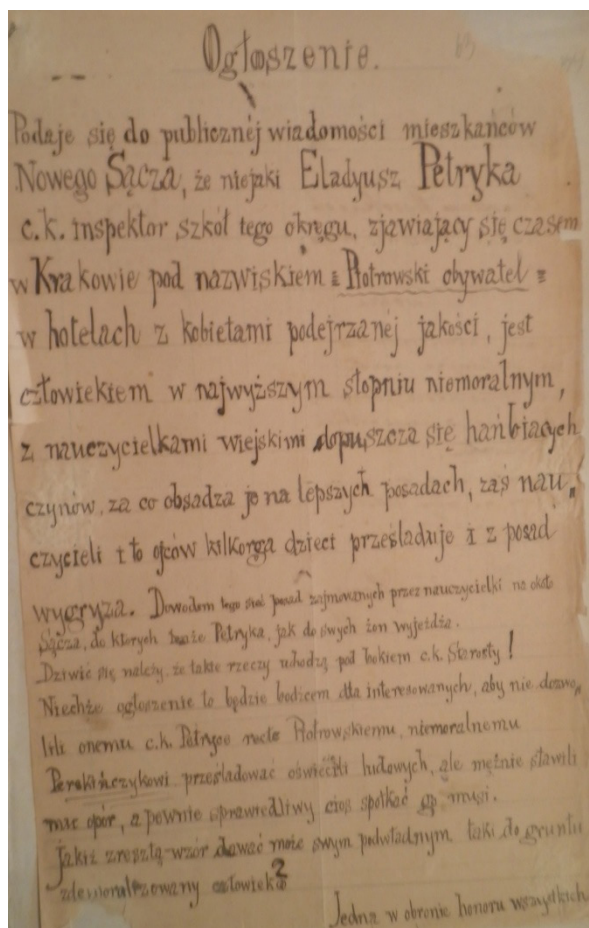 Ogłoszenie.
Podaje się do publicznéj wiadomości mieszkańców
Nowego Sącza, że niejaki Eladyusz Petryka
c.k. inspektor szkół tego okręgu, zjawiający się czasem
w Krakowie pod nazwiskiem „Piotrowski obywatel"
w hotelach z kobietami podejrzanéj jakości, jest
człowiekiem w najwyższym stopniu niemoralnym,
z nauczycielkami wiejskimi dopuszcza się hańbiacych
czynów, za co obsadza je na lepszych posadach, zaś nau„
czycieli i to ojców kilkorga dzieci prześladuje i z posad
wygryza. Dowodem tego sieć posad zajmowanych przez nauczycielki na około
Sącza, do których Petryka, jak do swych żon wyjeżdża.
Dziwić się należy, że takie rzeczy uchodzą pod bokiem c.k. Starosty!
Niechże ogłoszenie to będzie bodźcem dla interesowanych, aby nie dozwo„
lili onemu c.k. Petryce recte Piotrowskiemu, niemoralnemu
prześladować ludowych, ale mężnie stawili
mu opór, a pewnie sprawiedliwy cios spotkać go musi.
Jakiż zresztą wzór dawać może swym podwładnym taki do gruntu
zdemoralizowany człowiek?
Jedna w obronie honoru wszystkich